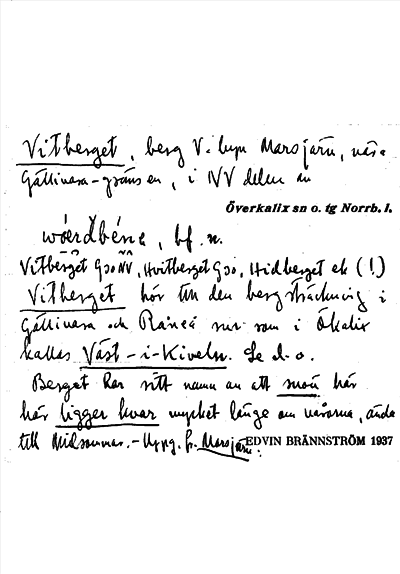 Vitberget, berg V. byn Marsjärv, nära
Gällivare-gränsen, i NV delen av
Överkalix sn o. tg Norrb. l.
bf. n.
Vitberget G30NV, Hvitberget G30, Hvidberget ek (!)
Vitberget hör till den bergsträckning i
Gällivare och Råneå snr som i Ökalix
kallas Väst-i-Kiveln. Se d. o.
Berget har sitt namn av att snön här
här ligger kvar mycket länge om vårarna, ända
till Midsommar. - Uppg. fr. Marsjärv.
EDVIN BRÄNNSTRÖM 1937